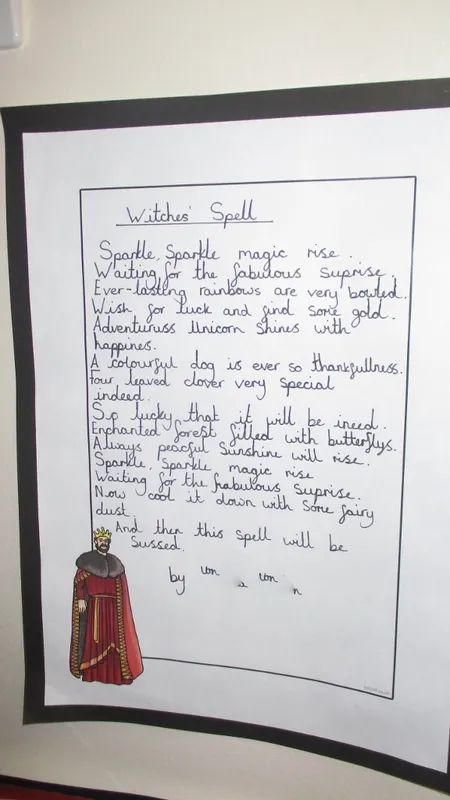 Witches' Spell
Sparkle, Sparkle magic rise.
Waiting for the fabulous suprise.
Ever-lasting rainbows are very bowled.
Wish for luck and find some gold.
Adventuruss Unicorn shines with
happines.
A colourful dog is ever so thankfullness.
Four leaved clover very special
indeed.
So lucky that it will be ineed.
Enchanted forest filled with butterflys.
Always peacful Sunshine will rise.
Sparkle, Sparkle magic rise
Waiting for the fabulous Suprise.
Now cool it down with some fairy
dust.
And then this spell will be
Sussed.
by